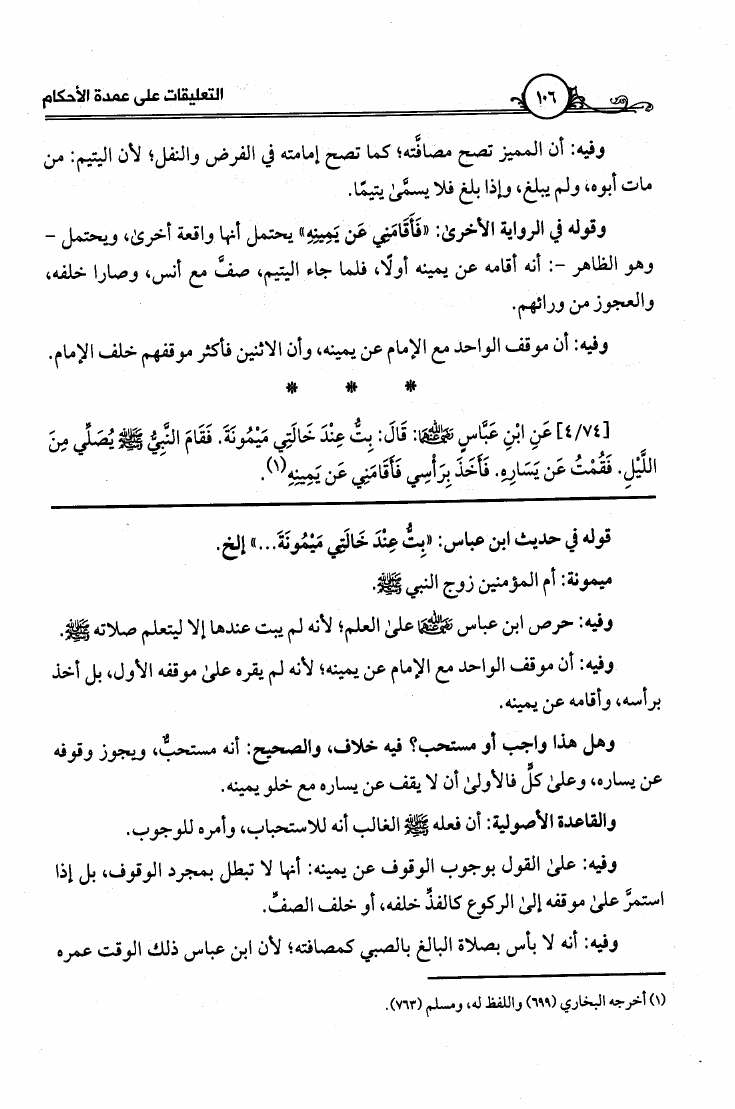 التعليقات على عمدة الأحكام
١٠٦
وفيه: أن المميز تصح مصافَّته؛ كما تصح إمامته في الفرض والنفل؛ لأن اليتيم: من
مات أبوه، ولم يبلغ، وإذا بلغ فلا يسمَّىٰ يتيمًا.
وقوله في الرواية الأخرىٰ: «فَأَقَامَنِي عَن يَمِينِهِ» يحتمل أنها واقعة أخرىٰ، ويحتمل –
وهو الظاهر –: أنه أقامه عن يمينه أولًا، فلما جاء اليتيم، صفَّ مع أنس، وصارا خلفه،
والعجوز من ورائهم.
وفيه: أن موقف الواحد مع الإمام عن يمينه، وأن الاثنين فأكثر موقفهم خلف الإمام.
* * *
[٤/٧٤] عَنِ ابْنِ عَبَّاسٍ رضي الله عنهما: قَالَ: بِتُّ عِنْدَ خَالَتِي مَيْمُونَةَ. فَقَامَ النَّبِيُّ ﷺ يُصَلِّي مِنَ
اللَّيْلِ. فَقُمْتُ عَن يَسَارِهِ. فَأَخَذَ بِرَأْسِي فَأَقَامَنِي عَن يَمِينِهِ(١).
قوله في حديث ابن عباس: «بِتُّ عِنْدَ خَالَتِي مَيْمُونَةَ...» إلخ.
ميمونة: أم المؤمنين زوج النبي ﷺ.
وفيه: حرص ابن عباس رضي الله عنهما علىٰ العلم؛ لأنه لم يبت عندها إلا ليتعلم صلاته ﷺ.
وفيه: أن موقف الواحد مع الإمام عن يمينه؛ لأنه لم يقره علىٰ موقفه الأول، بل أخذ
برأسه، وأقامه عن يمينه.
وهل هذا واجب أو مستحب؟ فيه خلاف، والصحيح: أنه مستحبٌّ، ويجوز وقوفه
عن يساره، وعلىٰ كلٍّ فالأولىٰ أن لا يقف عن يساره مع خلو يمينه.
والقاعدة الأصولية: أن فعله ﷺ الغالب أنه للاستحباب، وأمره للوجوب.
وفيه: علىٰ القول بوجوب الوقوف عن يمينه: أنها لا تبطل بمجرد الوقوف، بل إذا
استمرَّ علىٰ موقفه إلىٰ الركوع كالفذِّ خلفه، أو خلف الصفِّ.
وفيه: أنه لا بأس بصلاة البالغ بالصبي كمصافته؛ لأن ابن عباس ذلك الوقت عمره
(١) أخرجه البخاري (٦٩٩) واللفظ له، ومسلم (٧٦٣).